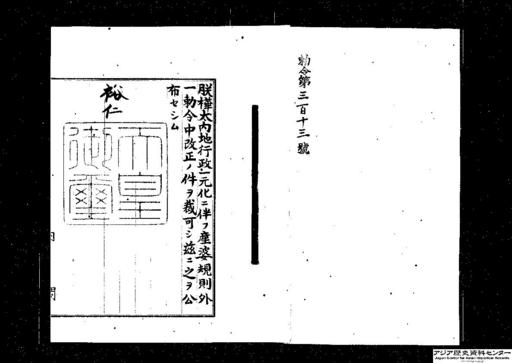 勅令第三百十三號
朕樺太內地行政一元化ニ伴フ產婆規則外
一勅令中改正ノ件ヲ裁可シ玆ニ之ヲ公
布セシム
裕仁
天皇御璽
内閣
アジア歴史資料センター
Japan Center for Asian Historical Records